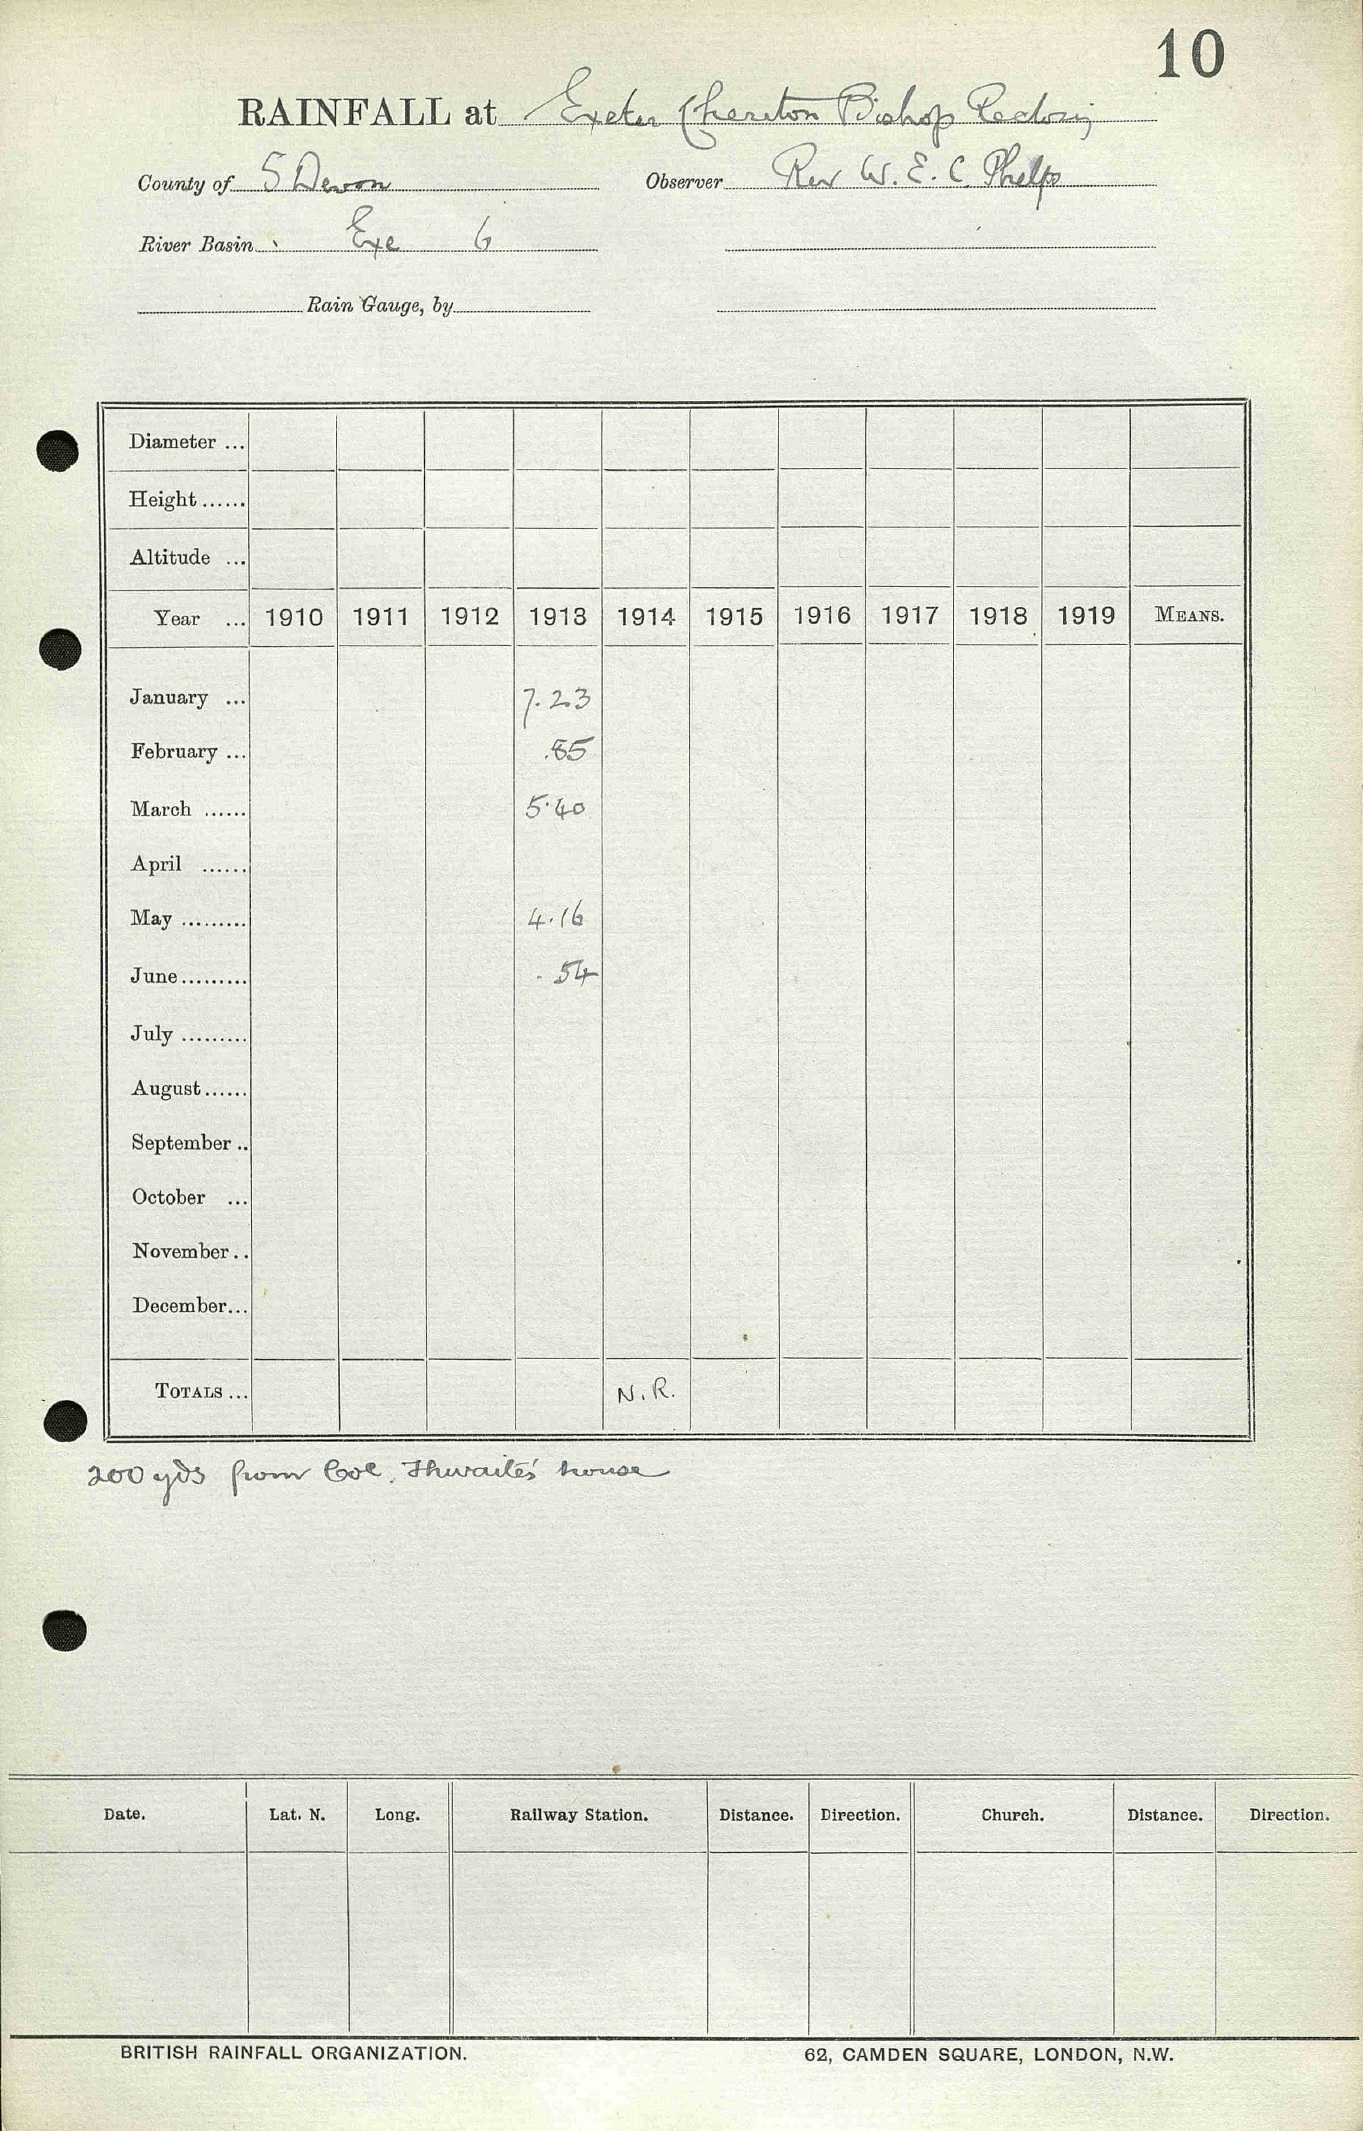 10
RAINFALL at Exeter Cheriton Bishop Rectory
County of S Devon Observer Rev W. E. C. Phelps
River Basin Exe 6
Rain Gauge, by
Diameter ...
Height ......
Altitude ...
Year ... 1910 1911 1912 1913 1914 1915 1916 1917 1918 1919 MEANS.
January ... 7.23
February ... .85
March ...... 5.40
April ......
May ......... 4.16
June ......... .54
July .........
August ......
September ..
October ...
November ..
December ...
TOTALS ... N.R.
200 yds from Col. Thwaites' house
Date. Lat. N. Long. Railway Station. Distance. Direction. Church. Distance. Direction.
BRITISH RAINFALL ORGANIZATION. 62, CAMDEN SQUARE, LONDON, N.W.